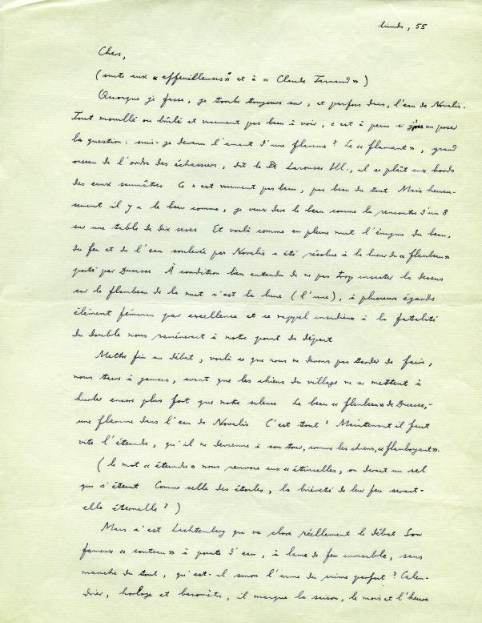 lundi, 55
Cher,
(suite aux « effeuilleuses » et à « Claude »)
Quoique je fasse, je tombe toujours sur, et parfois dans, l'eau de Novalis.
Tout mouillé ou brûlé et vraiment pas beau à voir, c'est à peine si j'ose poser
la question : suis-je devenu l'amant d'une flamme ? Le « flamant », grand
oiseau de l'ordre des échassiers, dit le Pt Larousse Ill., il se plaît aux bords
des eaux saumâtres. Ce n'est vraiment pas beau, pas beau du tout. Mais heureu-
sement il y a le beau comme, je veux dire le beau comme la rencontre d'un 8
sur une table de dix sous. Et voilà comme en pleine nuit l'énigme du beau,
du feu et de l'eau soulevée par Novalis a été résolue à la lueur du « flambeau »
par Ducasse. À condition bien entendu de ne pas trop insister là-dessus
car le flambeau de la nuit c'est la lune (l'une), à plusieurs égards
élément féminin par excellence et ce rappel à la fatalité
du double nous ramènerait à notre point de départ.
Mettre fin au débat, voilà ce que nous ne devons pas tarder de faire,
nous taire à jamais, avant que les chiens du village ne se mettent à
hurler encore plus fort que notre silence. Le beau « flambeau » de Ducasse,
une flamme dans l'eau de Novalis. C'est tout ! Maintenant il faut
vite l'éteindre, qu'il ne devienne à son tour, comme les chiens, « flamboyant ».
(le mot « éteindre » nous renvoie aux « étincelles », on dirait un sel
qui s'éteint. Comme celle des étoiles, la brièveté de leur feu serait-
elle éternelle ?)
Mais c'est Lichtenberg qui va clore réellement le débat. Son
fameux « couteau » à pointe d'eau, à lame de feu invisible, sans
manche du tout, qu'est-il sinon l'arme du crime parfait ? Calen-
drier, horloge et baromètre, il marque la saison, le mois et l'heure